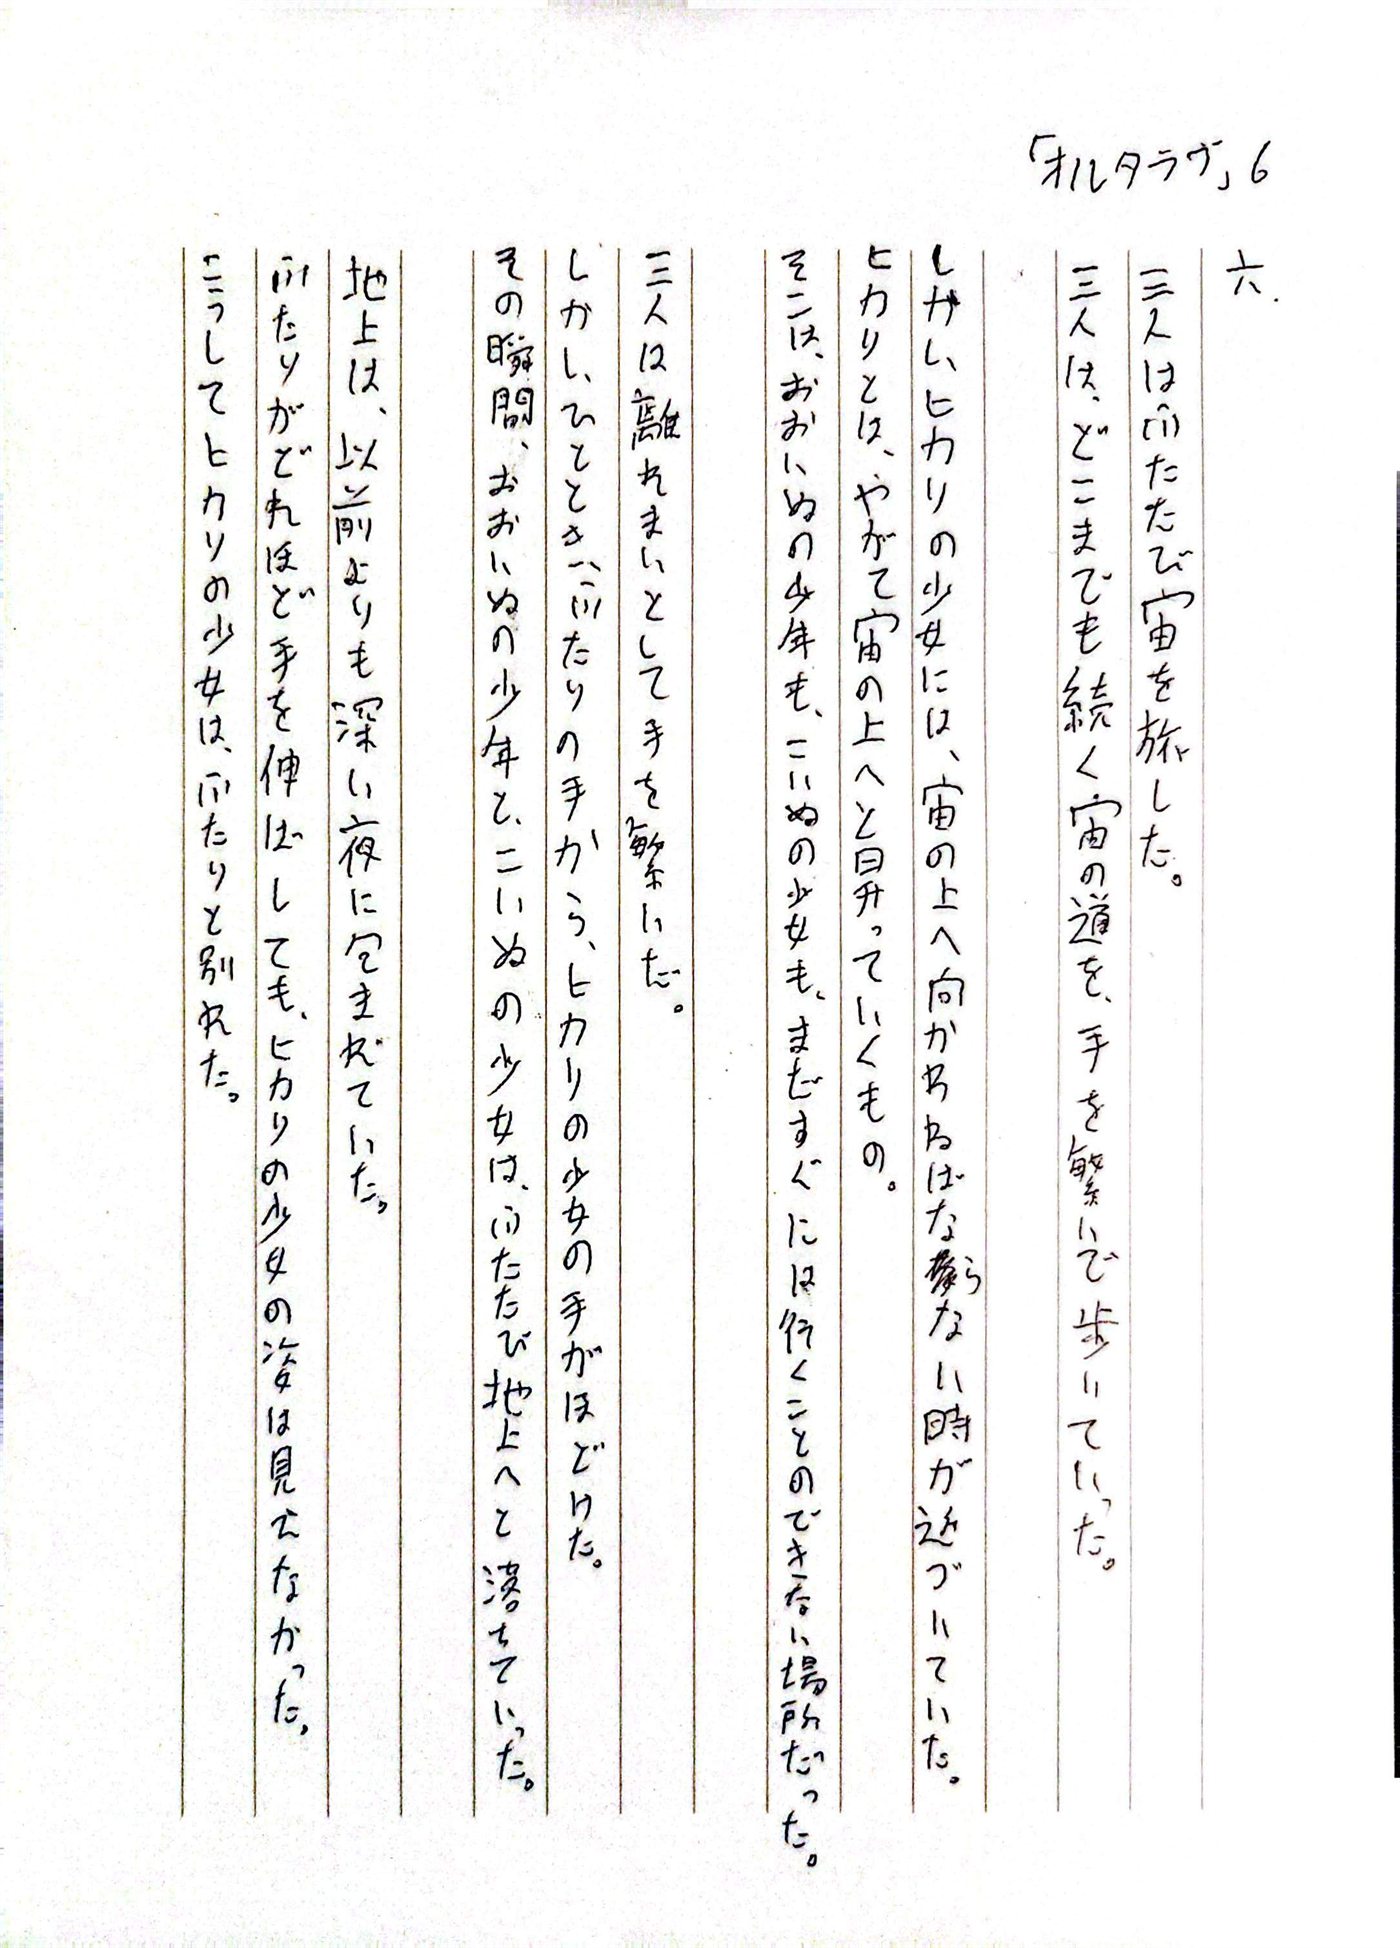 「オルタラヴ」6
六.
三人はふたたび宙を旅した。
三人は、どこまでも続く宙の道を、手を繋いで歩いていった。
しかし、ヒカリの少女には、宙の上へ向かわねばならない時が近づいていた。
ヒカリとは、やがて宙の上へと昇っていくもの。
そこは、おおいぬの少年も、こいぬの少女も、まだすぐには行くことのできない場所だった。
三人は離れまいとして手を繋いだ。
しかし、ひととき、ふたりの手から、ヒカリの少女の手がほどけた。
その瞬間、おおいぬの少年と、こいぬの少女は、ふたたび地上へと落ちていった。
地上は、以前よりも深い夜に包まれていた。
ふたりがどれほど手を伸ばしても、ヒカリの少女の姿は見えなかった。
こうしてヒカリの少女は、ふたりと別れた。